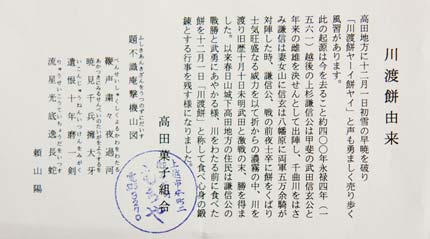 川渡餅由来
高田地方に十二月一日初雪の早暁を破り
「川渡餅ヤーイ餅ヤイ」と声も勇ましく売り歩く
風習があります。
此の起源は今を去ること約四〇〇年永禄四年（一
五六一）越後の上杉謙信公は甲斐の武田信玄と
年来の雌雄を決せんとして出陣し、千曲川をはさ
み謙信は妻女山に信玄は八幡原に両軍五万余騎が
対陣した時、謙信公、戦の前夜士卒に餅をくばり
士気旺盛なる威力を以て折からの濃霧の中、川を
渡り旧歴十月十日未明武田と激戦の末、勝を得ま
した。以来春日山城下高田地方の住民は謙信公の
戦勝と武勇にあやかる様、川をわたる前に食べた
餅を十二月一日「川渡餅」と称して食べ心身の鍛
錬とする行事を残す様になりました。
高田菓子組合
題不識庵撃機山図
鞭声粛々夜過河
べんせいしゅくしゅくよるかわをわたる
暁見千兵擁大牙
遺恨十年磨剣
流星光底逸長蛇
頼山陽